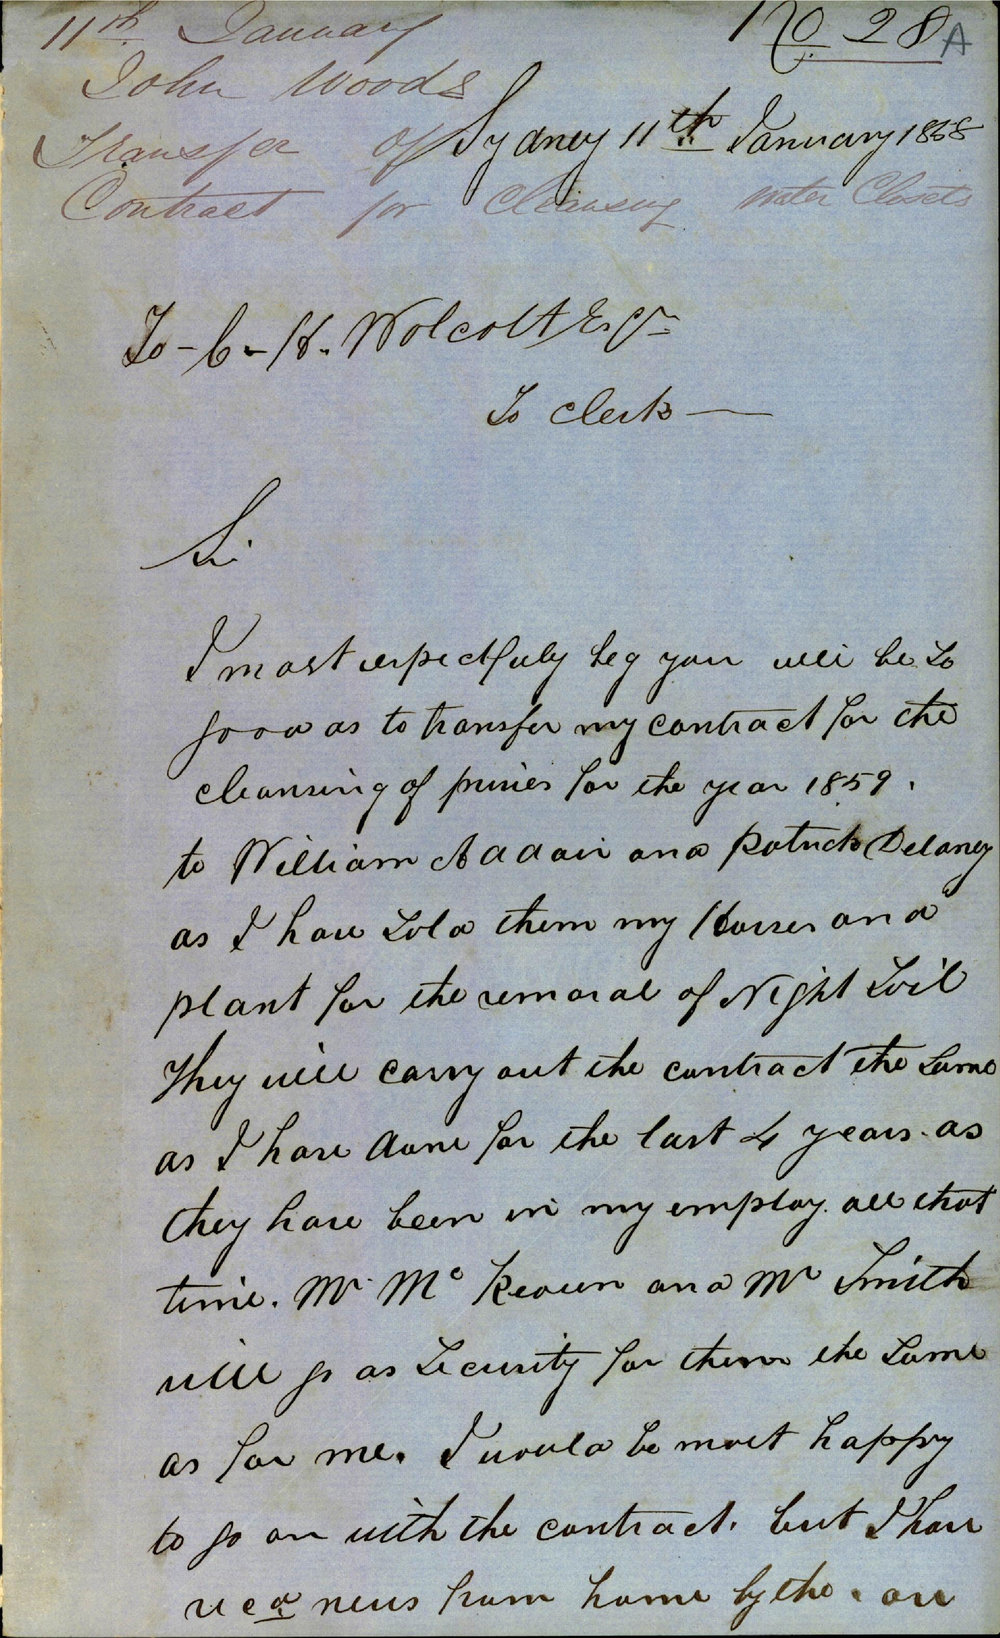 11th January
No 28A
John Woods
Transfer of
Sydney 11th January 1858
Contract for Cleansing Water Closets
To - C - H. Wolcott Esqr
To Clerk —
Sir
I most respectfuly beg you will be so
good as to transfer my contract for the
cleansing of privies for the year 1859.
to William Adair and Patrick Delaney
as I have sold them my Horses and
plant for the removal of Night Soil
they will carry out the contract the same
as I have done for the last 4 years. as
they have been in my employ. all that
time. Mr Mc Keown and Mr Smith
will go as security for them the same
as for me. I would be most happy
to go on with the contract. but I have
recd news from home by the